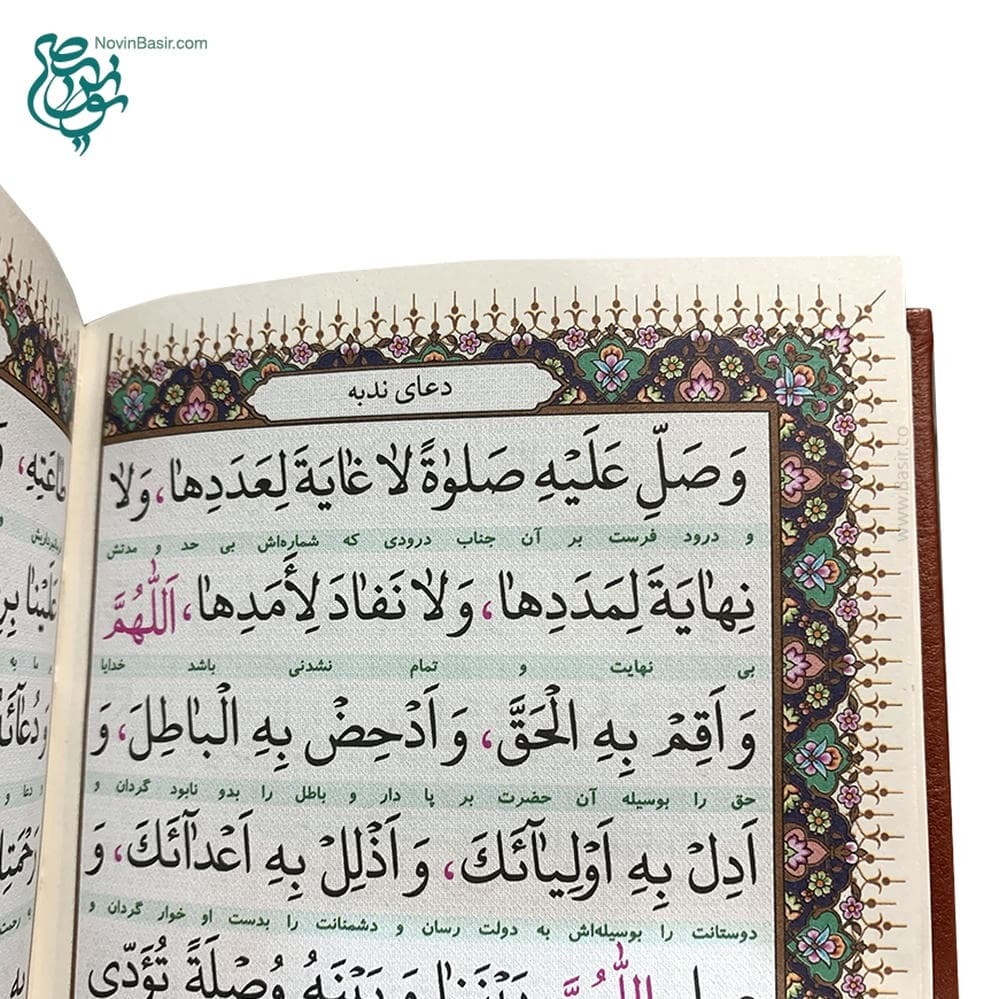 NovinBasir.com
دعای ندبه
وَ صَلِّ عَلَيْهِ صَلوٰةً لا غٰايَةَ لِعَدَدِهٰا، وَلا
و درود فرست بر آن جناب درودی که شماره‌اش بی حد و مدتش
نِهٰايَةَ لِمَدَدِهٰا، وَلا نَفٰادَ لِأَمَدِهٰا، اَللّٰهُمَّ
بی نهایت و تمام نشدنی باشد خدایا
وَ اَقِمْ بِهِ الْحَقَّ، وَ اَدْحِضْ بِهِ الْبٰاطِلَ، وَ
حق را بوسیله آن حضرت بر پا دار و باطل را بدو نابود گردان و
اَدِلْ بِهِ اَوْلِيٰآئَكَ، وَ اَذْلِلْ بِهِ اَعْدٰآئَكَ، وَ
دوستانت را بوسیله‌اش به دولت رسان و دشمنانت را بدست او خوار گردان و
اللّٰهُمَّ بَيْنَنٰا وَ بَيْنَهُ وُصْلَةً تُؤَدّى